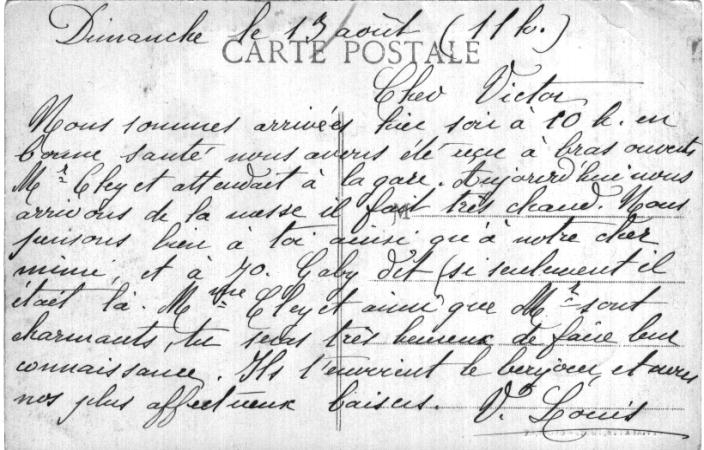 Dimanche le 13 août (11 h.)
CARTE POSTALE
Cher Victor
Nous sommes arrivées hier soir à 10 h. en
bonne santé nous avons été reçu à bras ouverts
Mr Cleyet attendait à la gare. Aujourd'hui nous
arrivons de la messe il fait très chaud. Nous
pensons bien à toi ainsi qu'à notre cher
mimi, et à Jo. Gaby dit (si seulement il
était là. Mme Cleyet ainsi que Mr sont
charmants, tu seras très heureux de faire leur
connaissance. Ils t'envoient le bonjour, et avec
nos plus affectueux baisers. V. Louis